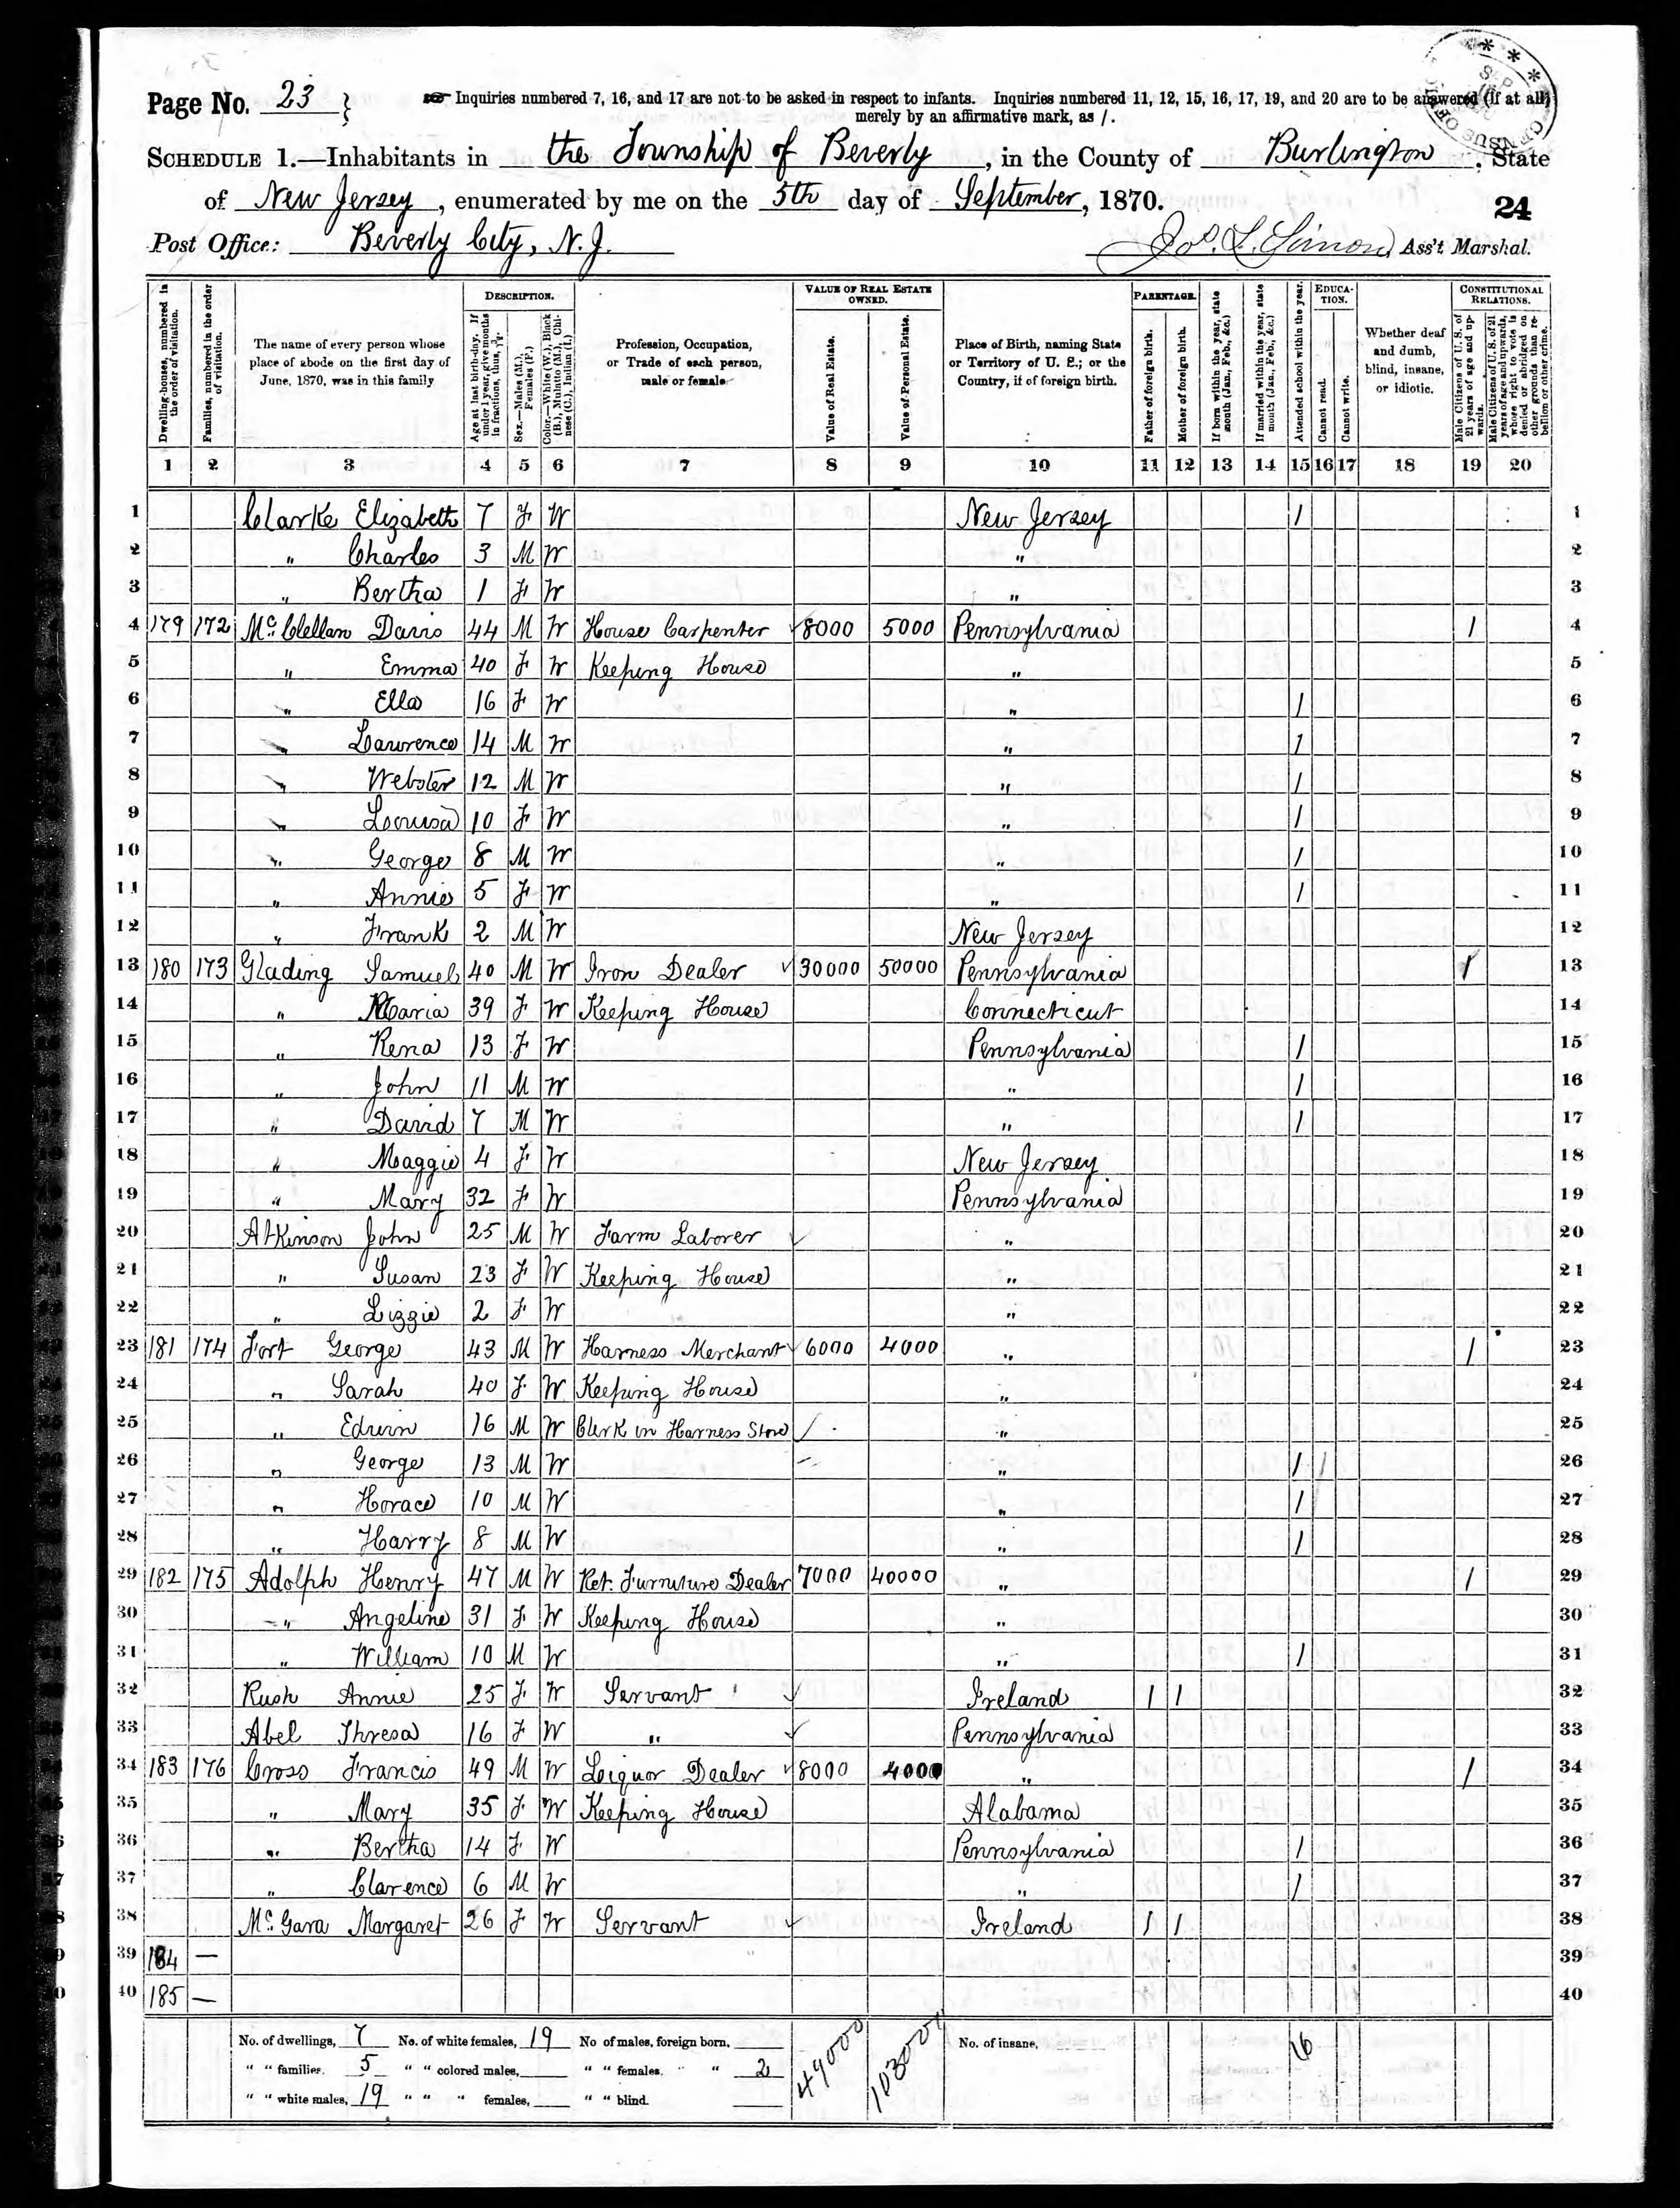 Page No. 23
Inquiries numbered 7, 16, and 17 are not to be asked in respect to infants. Inquiries numbered 11, 12, 15, 16, 17, 19, and 20 are to be answered (if at all)
merely by an affirmative mark, as /.
SCHEDULE 1.—Inhabitants in the Township of Beverly, in the County of Burlington, State
of New Jersey, enumerated by me on the 5th day of September, 1870.
24
Post Office: Beverly City, N. J. Jos. L. Simon, Ass't Marshal.
Dwelling-houses, numbered in the order of visitation.
Families, numbered in the order of visitation.
The name of every person whose place of abode on the first day of June, 1870, was in this family
DESCRIPTION.
Age at last birth-day. If under 1 year, give months in fractions, thus, 3/12.
Sex.—Males (M.), Females (F.)
Color.—White (W.), Black (B.), Mulatto (M.), Chinese (C.), Indian (I.)
Profession, Occupation, or Trade of each person, male or female
VALUE OF REAL ESTATE OWNED.
Value of Real Estate.
Value of Personal Estate.
Place of Birth, naming State or Territory of U. S.; or the Country, if of foreign birth.
PARENTAGE.
Father of foreign birth.
Mother of foreign birth.
If born within the year, state month (Jan., Feb., &c.)
If married within the year, state month (Jan., Feb., &c.)
Attended school within the year.
EDUCATION.
Cannot read.
Cannot write.
Whether deaf and dumb, blind, insane, or idiotic.
CONSTITUTIONAL RELATIONS.
Male Citizens of U. S. of 21 years of age and upwards.
Male Citizens of U. S. of 21 years of age and upwards, whose right to vote is denied or abridged on other grounds than rebellion or other crime.
1 2 3 4 5 6 7 8 9 10 11 12 13 14 15 16 17 18 19 20
1 Clarke Elizabeth 7 F W New Jersey / 1
2 " Charles 3 M W " 2
3 " Bertha 1 F W " 3
4 179 172 Mc.Clellan Davis 44 M W House Carpenter 8000 5000 Pennsylvania / 4
5 " Emma 40 F W Keeping House " 5
6 " Ella 16 F W " / 6
7 " Lawrence 14 M W " / 7
8 " Webster 12 M W " / 8
9 " Louisa 10 F W " / 9
10 " George 8 M W " / 10
11 " Annie 5 F W " / 11
12 " Frank 2 M W New Jersey 12
13 180 173 Glading Samuel 40 M W Iron Dealer 30000 50000 Pennsylvania / 13
14 " Maria 39 F W Keeping House Connecticut 14
15 " Rena 13 F W Pennsylvania / 15
16 " John 11 M W " / 16
17 " David 7 M W " / 17
18 " Maggie 4 F W New Jersey 18
19 " Mary 32 F W Pennsylvania 19
20 Atkinson John 25 M W Farm Laborer " 20
21 " Susan 23 F W Keeping House " 21
22 " Lizzie 2 F W " 22
23 181 174 Fort George 43 M W Harness Merchant 6000 4000 " / 23
24 " Sarah 40 F W Keeping House " 24
25 " Edwin 16 M W Clerk in Harness Store " 25
26 " George 13 M W " / / 26
27 " Horace 10 M W " / 27
28 " Harry 8 M W " / 28
29 182 175 Adolph Henry 47 M W Ret. Furniture Dealer 7000 40000 " / 29
30 " Angeline 31 F W Keeping House " 30
31 " William 10 M W " / 31
32 Rush Annie 25 F W Servant Ireland / / 32
33 Abel Thresa 16 F W " Pennsylvania 33
34 183 176 Cross Francis 49 M W Liquor Dealer 8000 4000 " / 34
35 " Mary 35 F W Keeping House Alabama 35
36 " Bertha 14 F W Pennsylvania / 36
37 " Clarence 6 M W " / 37
38 Mc.Gara Margaret 26 F W Servant Ireland / / 38
39 184 — 39
40 185 — 40
No. of dwellings, 7 No. of white females, 19 No of males, foreign born, 49000 103000 No. of insane, 16
" " families. 5 " " colored males, " " females. " " 2
" " white males, 19 " " " females, " " blind.